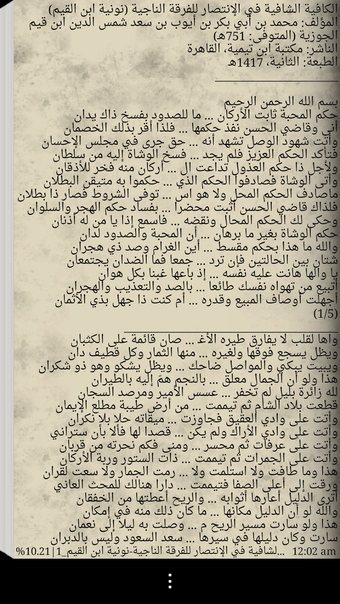 الكافية الشافية في الإنتصار للفرقة الناجية (نونية ابن القيم)
المؤلف: محمد بن أبي بكر بن أيوب بن سعد شمس الدين ابن قيم
الجوزية (المتوفى: 751هـ)
الناشر: مكتبة ابن تيمية، القاهرة
الطبعة: الثانية، 1417هـ
بسم الله الرحمن الرحيم
حكم المحبة ثابت الأركان ... ما للصدود بفسخ ذاك يدان
أنى وقاضي الحسن نفذ حكمها ... فلذا أقر بذلك الخصمان
وأتت شهود الوصل تشهد أنه ... حق جرى في مجلس الإحسان
فتأكد الحكم العزيز فلم يجد ... فسخ الوشاة إليه من سلطان
ولأجل ذا حكم العذول تداعت ال ... أركان منه فخر للأذقان
وأتى الوشاة فصادفوا الحكم الذي ... حكموا به متيقن البطلان
ما صادف الحكم المحل ولا هو اس ... توفى الشروط فصار ذا بطلان
فلذاك قاضي الحسن أثبت محضرا ... بفساد حكم الهجر والسلوان
وحكى لك الحكم المحال ونقضه ... فاسمع إذا يا من له أذنان
حكم الوشاة بغير ما برهان ... إن المحبة والصدود لدان
والله ما هذا بحكم مقسط ... أين الغرام وصد ذي هجران
شتان بين الحالتين فإن ترد ... جمعا فما الضدان يجتمعان
يا والها هانت عليه نفسه ... إذ باعها غبنا بكل هوان
أتبيع من تهواه نفسك طائعا ... بالصد والتعذيب والهجران
أجهلت أوصاف المبيع وقدره ... أم كنت ذا جهل بذي الأثمان
(1/5)
واها لقلب لا يفارق طيره الأغـ ... صان قائمة على الكثبان
ويظل يسجع فوقها ولغيره ... منها الثمار وكل قطف دان
ويبيت يبكي والمواصل ضاحك ... ويظل يشكو وهو ذو شكران
هذا ولو أن الجمال معلق ... بالنجم هم إليه بالطيران
لله زائرة بليل لم تخفر ... عسس الأمير ومرصد السجان
قطعت بلاد الشام ثم تيممت ... من أرض طيبة مطلع الإيمان
وأتت على وادي العقيق فجاوزت ... ميقاته حلا بلا نكران
وأتت على وادي الأراك ولم يكن ... قصدا لها فألا بأن ستراني
وأتت على عرفات ثم محسر ... ومنى فكم نحرته من قربان
وأتت على الجمرات ثم تيممت ... ذات الستور وربة الأركان
هذا وما طافت ولا استلمت ولا ... رمت الجمار ولا سعت لقران
ورقت إلى أعلى الصفا فتيممت ... دارا هنالك للمحث العاني
أترى الدليل أعارها أثوابه ... والريح أعطتها من الخفقان
والله لو أن الدليل مكانها ... ما كان ذلك منه في إمكان
هذا ولو سارت مسير الريح م ... وصلت به ليلا إلى نعمان
سارت وكان دليلها في سيرها ... سعد السعود وليس بالدبران
12:02 am ...لشافية في الإنتصار للفرقة الناجية-نونية ابن القيم_1|10.21%